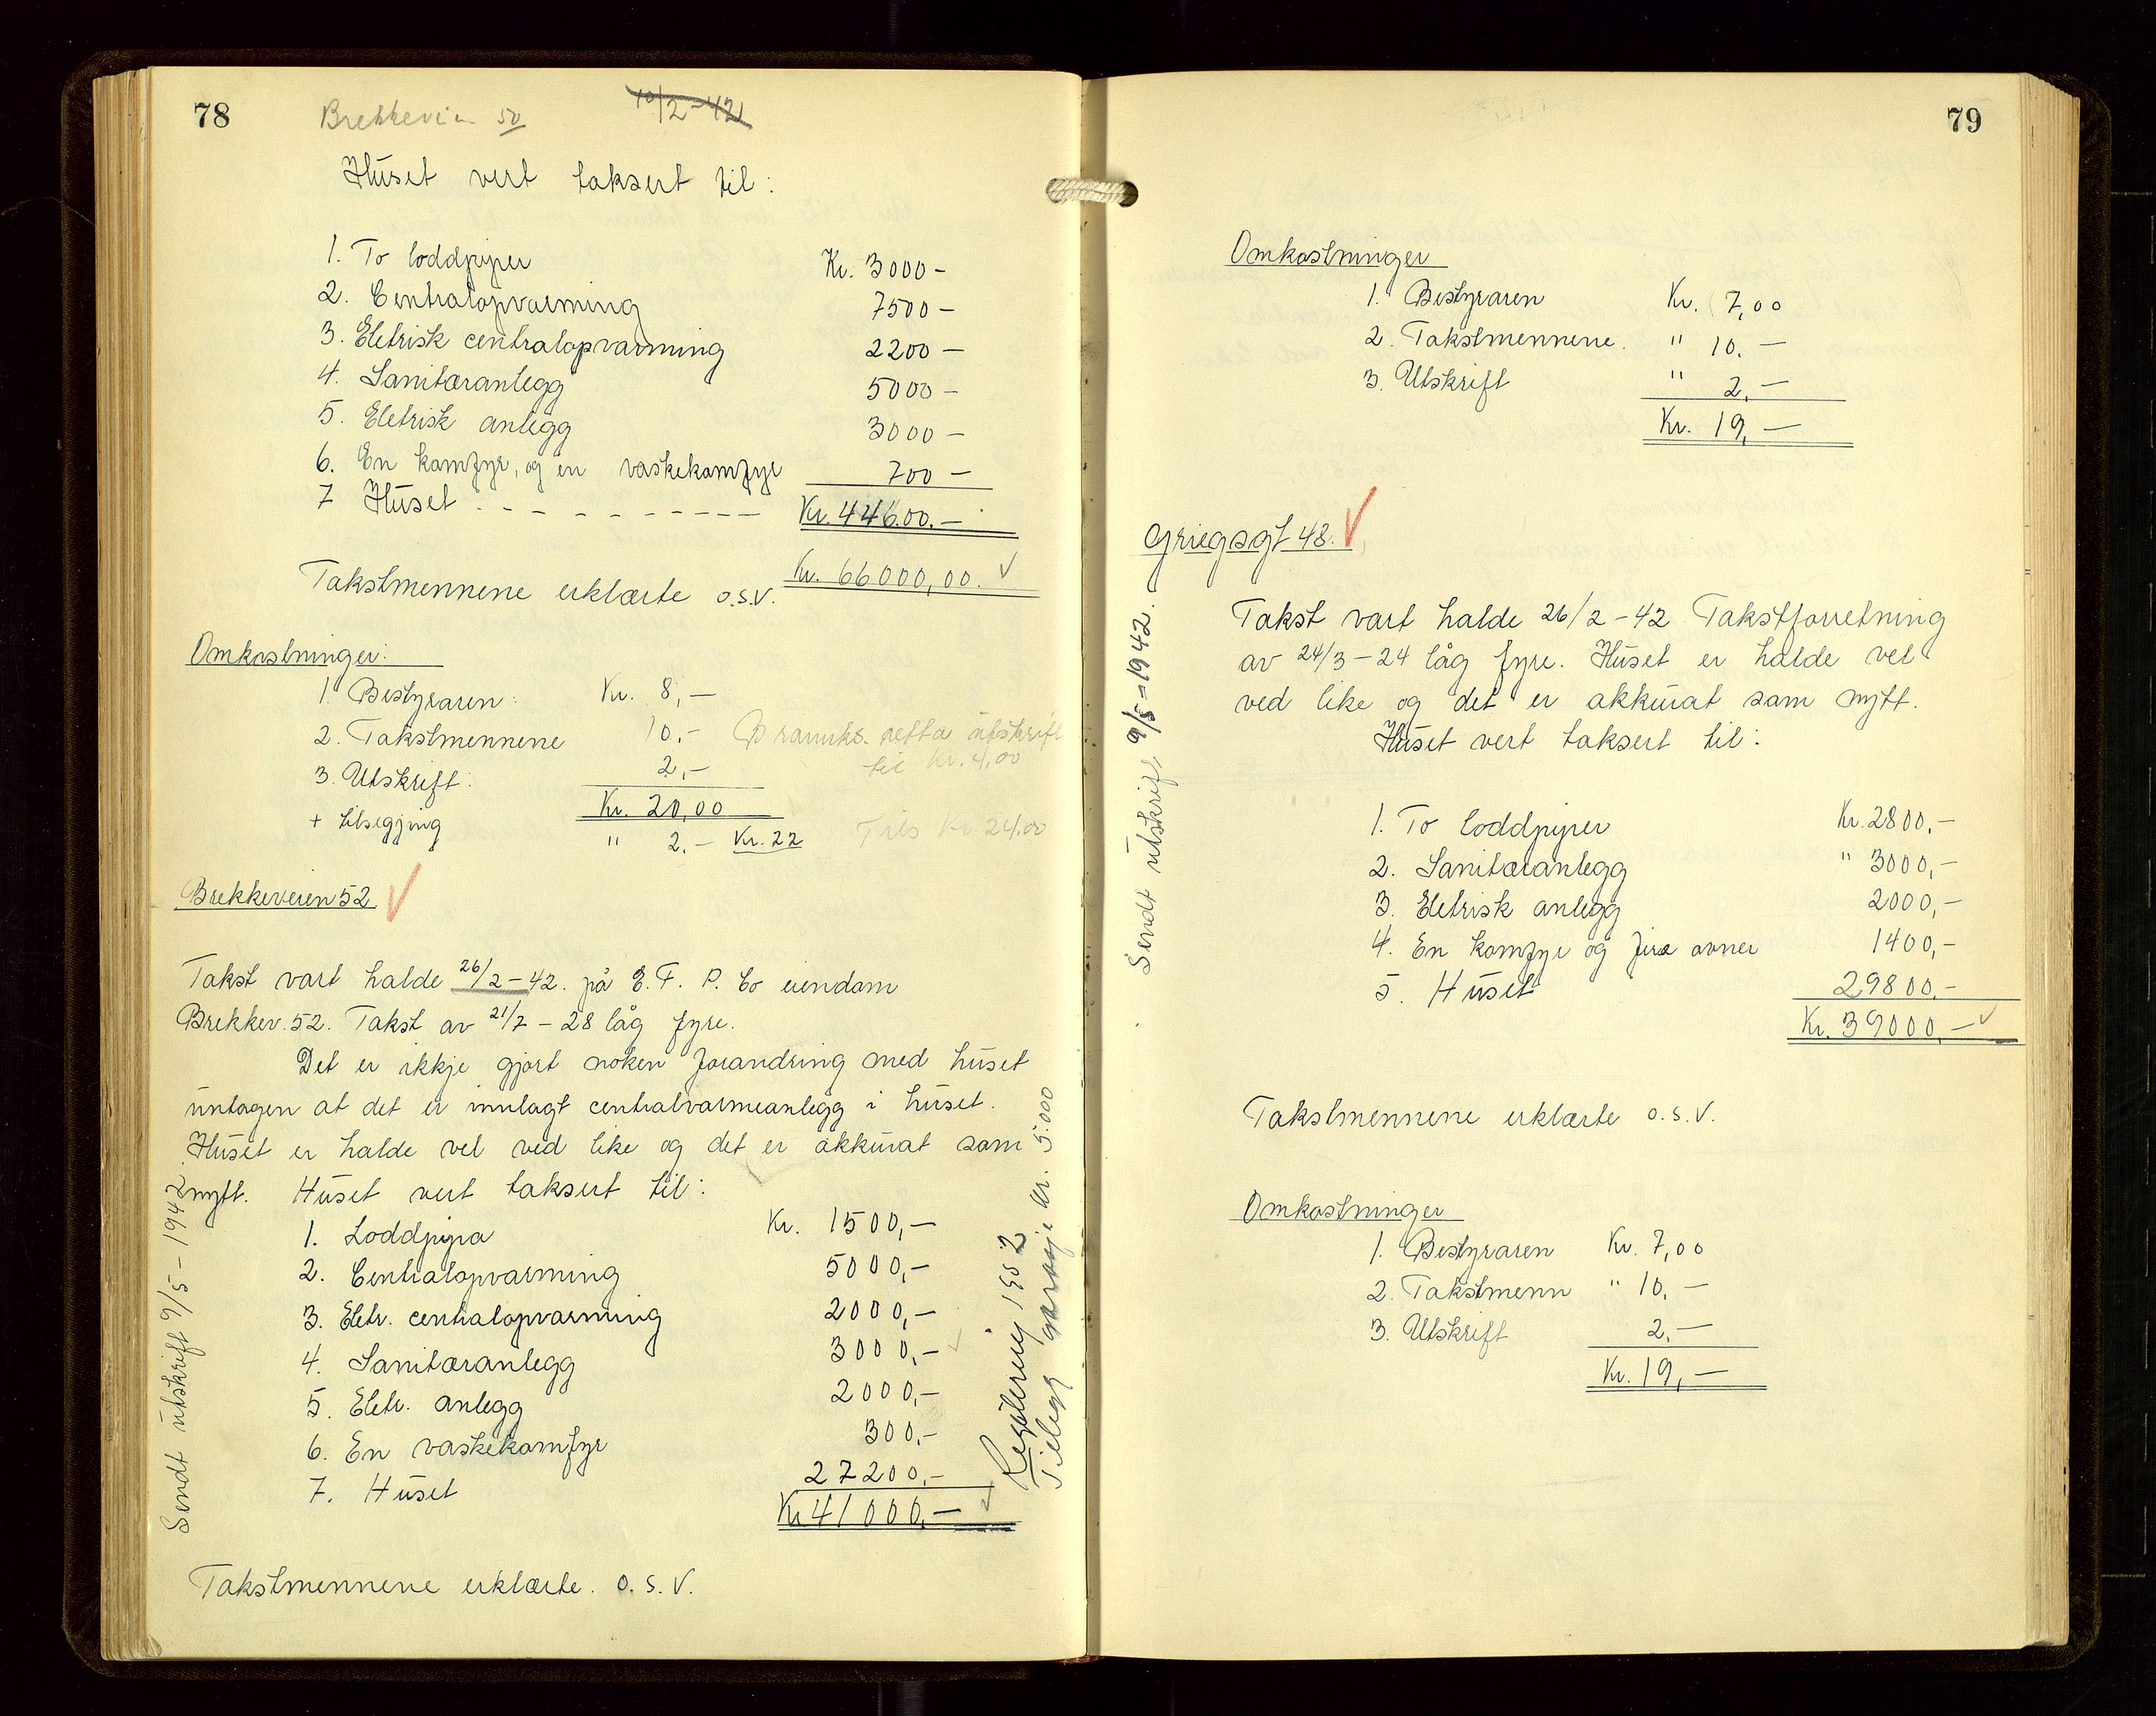 78
Brekkevein 50
10/2-42
Huset vert taksert til:
1. To loddpiper Kr. 3000 -
2. Centralopvarming 7500 -
3. Eletrisk centralopvarming 2200 -
4. Sanitæranlegg 5000 -
5. Eletrisk anlegg 3000 -
6. En komfyr, og en vaskekomfyr 700 -
7 Huset - - - - - - - - - - - Kr. 44600.-
Kr. 66000,00. ✓
Takstmennene erklærte o.s.v.
Omkostninger:
1. Bestyraren: Kr. 8,-
2. Takstmennene 10.- Brannks. retta utskrift
3. Utskrift: 2,- til kr. 4,00
Kr. 20,00
+ tilseging " 2.- Kr. 22 Tils Kr. 24.00
Brekkeveien 52 ✓
Takst vart halde 26/2-42. på E. F. P. Co eiendom
Brekkev. 52. Takst av 21/7 - 28 låg fyre.
Det er ikkje gjort noken forandring med huset
untagen at det er innlagt centralvarmeanlegg i huset.
Huset er halde vel ved like og det er akkurat som
nytt. Huset vert taksert til:
1. Loddpipa Kr. 1500,-
2. Centralopvarming 5000,-
3. Eletr. centralopvarming 2000,-
4. Sanitæranlegg 3000,- ✓
5. Eletr. anlegg 2000,-
6. En vaskekomfyr 300,-
7. Huset 27200,-
Kr 41000,- ✓
Takstmennene erklærte. o. s. v.
Sendt utskrift 9/5 - 1942.
Regulering 1952
Tillegg garasje kr. 5.000
79
Omkostninger
1. Bestyraren Kr. 7,00
2. Takstmennene. " 10. -
3. Utskrift " 2,-
Kr. 19,-
Griegsgt 48. ✓
Takst vart halde 26/2-42 Takstforretning
av 24/3-24 låg fyre. Huset er halde vel
ved like og det er akkurat som nytt.
Huset vert taksert til:
1. To loddpiper Kr. 2800,-
2. Sanitæranlegg " 3000,-
3. Eletrisk anlegg 2000,-
4. En komfyr og fira ovner 1400,-
5. Huset 29800,-
Kr. 39000,- ✓
Takstmennene erklærte o. s. v.
Omkostninger
1. Bestyraren Kr. 7,00
2. Takstmenn " 10,-
3. Utskrift 2,-
Kr. 19,-
Sendt utskrift 9/5-1942.